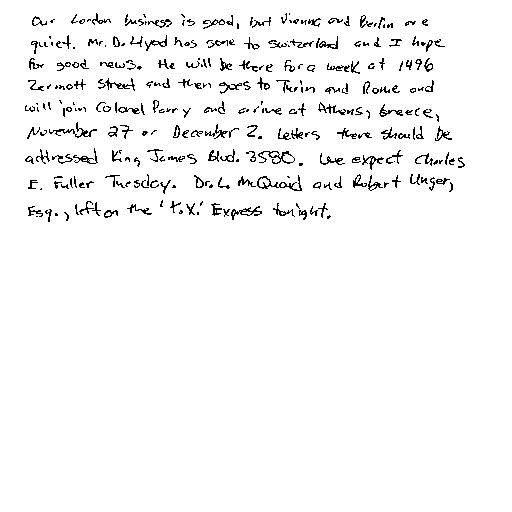 Our London business is good, but Vienna and Berlin are
quiet. Mr. D. Llyod has gone to Switzerland and I hope
for good news. He will be there for a week at 1496
Zermott Street and then goes to Turin and Rome and
will join Colonel Parry and arrive at Athens, Greece,
November 27 or December 2. Letters there should be
addressed King James Blvd. 3580. We expect Charles
E. Fuller Tuesday. Dr. L. McQuaid and Robert Unger,
Esq., left on the 'Y.X.' Express tonight.